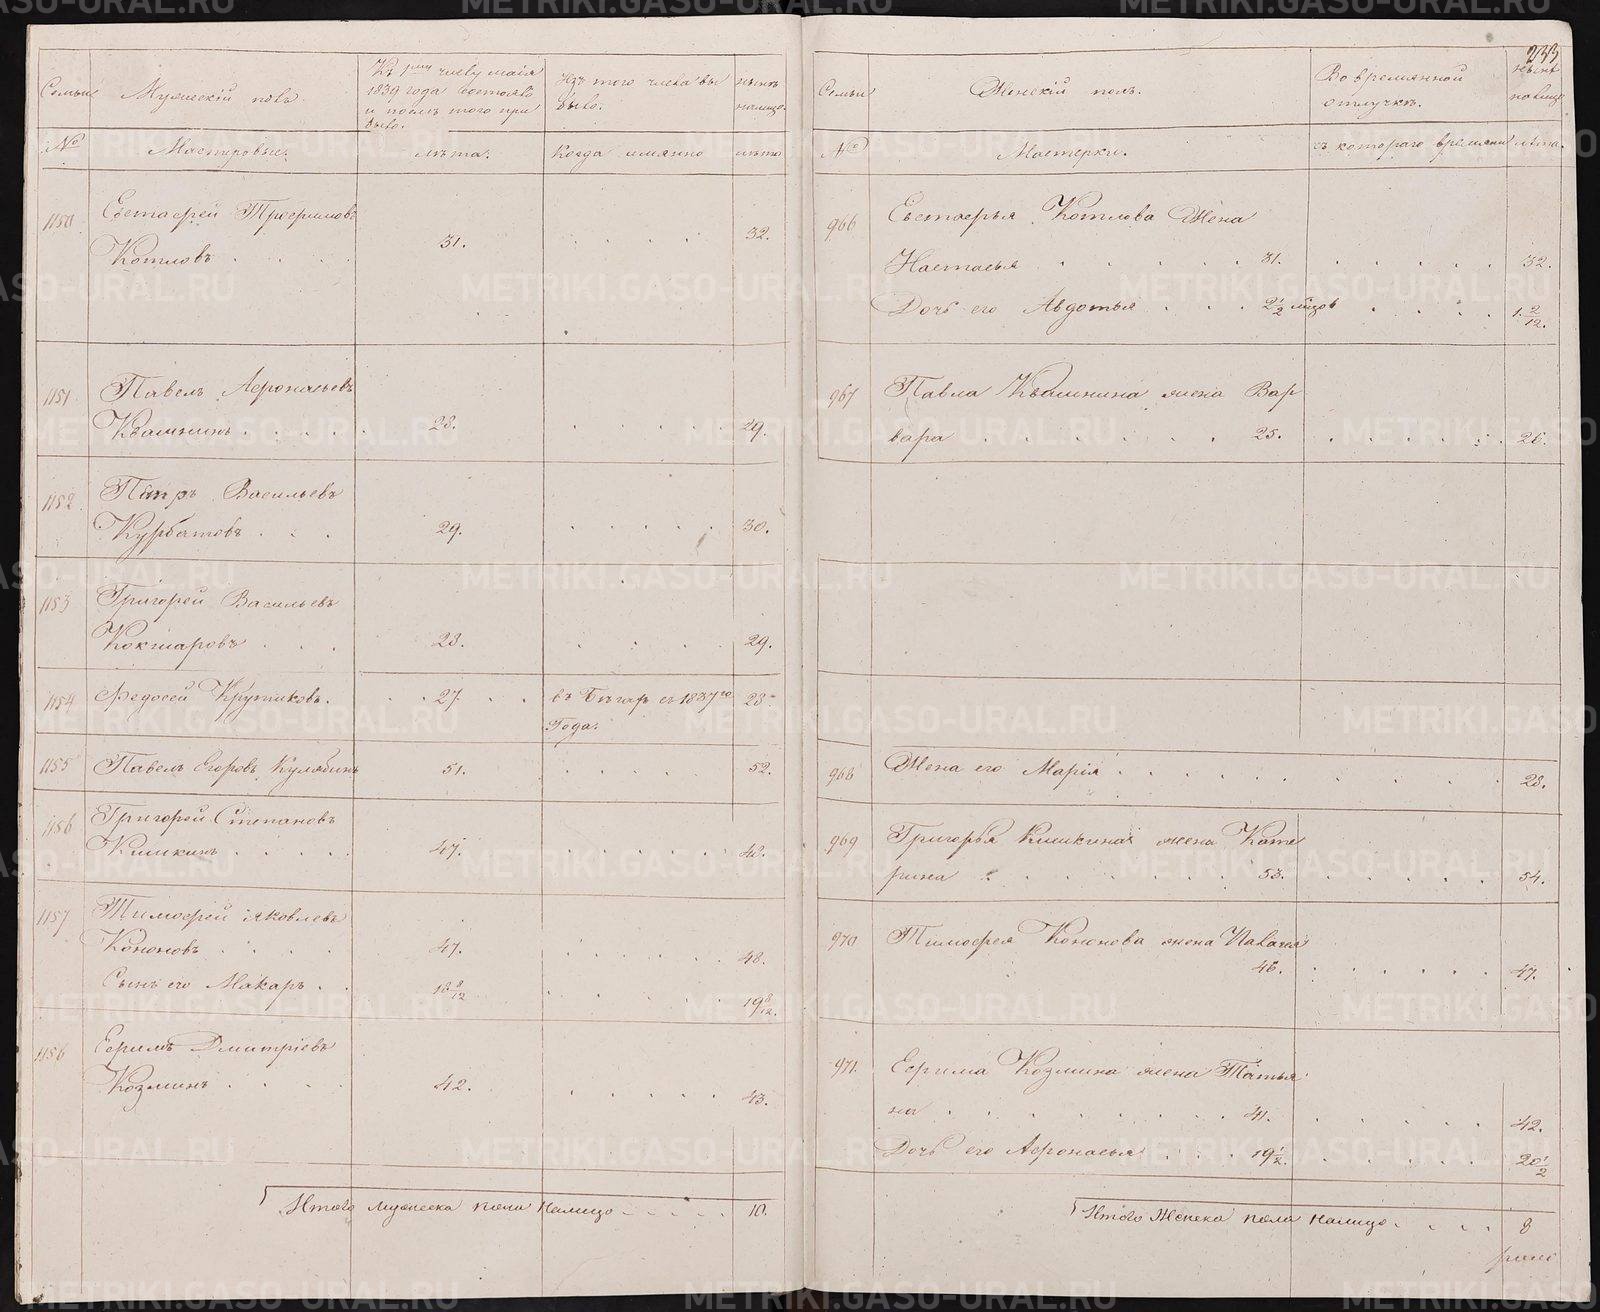 Семьи
Мужескій полъ.
Къ 1му числу маія
1839 года Состояло
и послѣ того при
было.
Изъ того числа вы
было.
нынѣ
налицо.
№
Мастеровые.
лѣта.
Когда имянно
лѣта
1150
Евстафей Трофимовъ
Котловъ
31.
32.
1151
Павелъ Афонасьевъ
Квашнинъ
28.
29.
1152
Петръ Васильевъ
Курбатовъ
29.
30.
1153
Григорей Васильевъ
Кокшаровъ
28.
29.
1154
Федосей Крутиковъ.
27.
въ Бѣгахъ съ 1837го
28
Года.
1155
Павелъ Егоровъ Кулябинъ
51.
52.
1156
Григорей Степановъ
Кишкинъ
47.
48.
1157
Тимофей Яковлевъ
Кононовъ
47.
48.
Сынъ его Макаръ
18 8/12
19 8/12.
1158
Ефимъ Дмитріевъ
Козминъ
42.
43.
Итого мужеска пола налицо
10.
233
Семьи
Женскій полъ.
Во времянной
отлучкѣ.
нынѣ
налицо
№
Мастерки.
съ котораго времяни
лѣта.
966
Евстафья Котлова Жена
Настасья
31.
32.
Дочь его Авдотья
2 1/2 мѣсѣцовъ
1. 2/12.
967
Павла Квашнина жена Вар
вара
25.
26.
968
Жена его Марія
28.
969
Григорья Кишкина жена Кате
рина
53.
54.
970
Тимофея Кононова жена Палагея
46.
47.
971.
Ефима Козмина жена Татья
на
41.
42.
Дочь его Афонасья
19 1/2.
20 1/2
Итого Женска пола налицо
8
METRIKI.GASO-URAL.RU